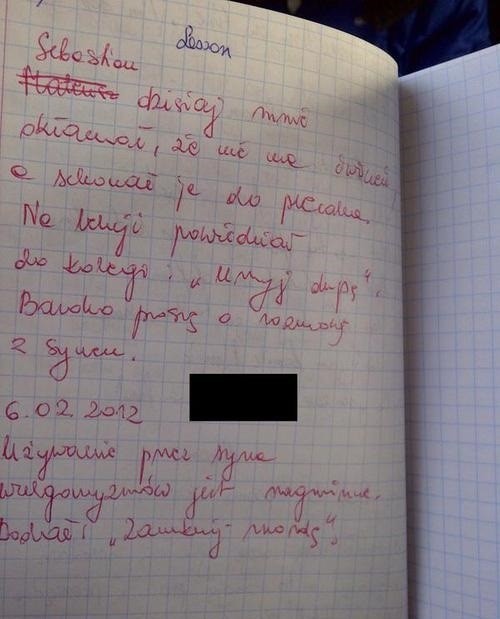 Lesson
Sebastian
Mateusz dzisiaj mnie
okłamał, że nie ma ćwiczeń
a schował je do plecaka.
Na lekcji powiedział
do kolegi: „Umyj dupę".
Bardzo proszę o rozmowę
z synem.
6.02.2012
Używanie przez syna
wulgaryzmów jest nagminne.
Dodał: „Zamknij mordę".